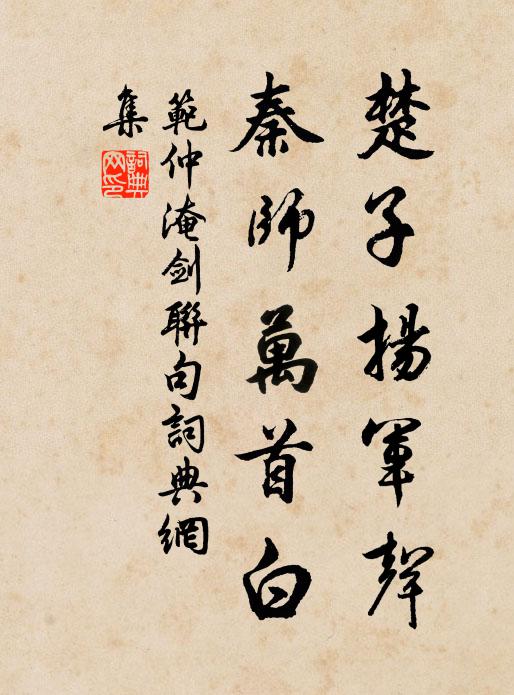 楚子揚軍聲
秦師萬首白
範仲淹劍聯句詞典網
集
詞典網印